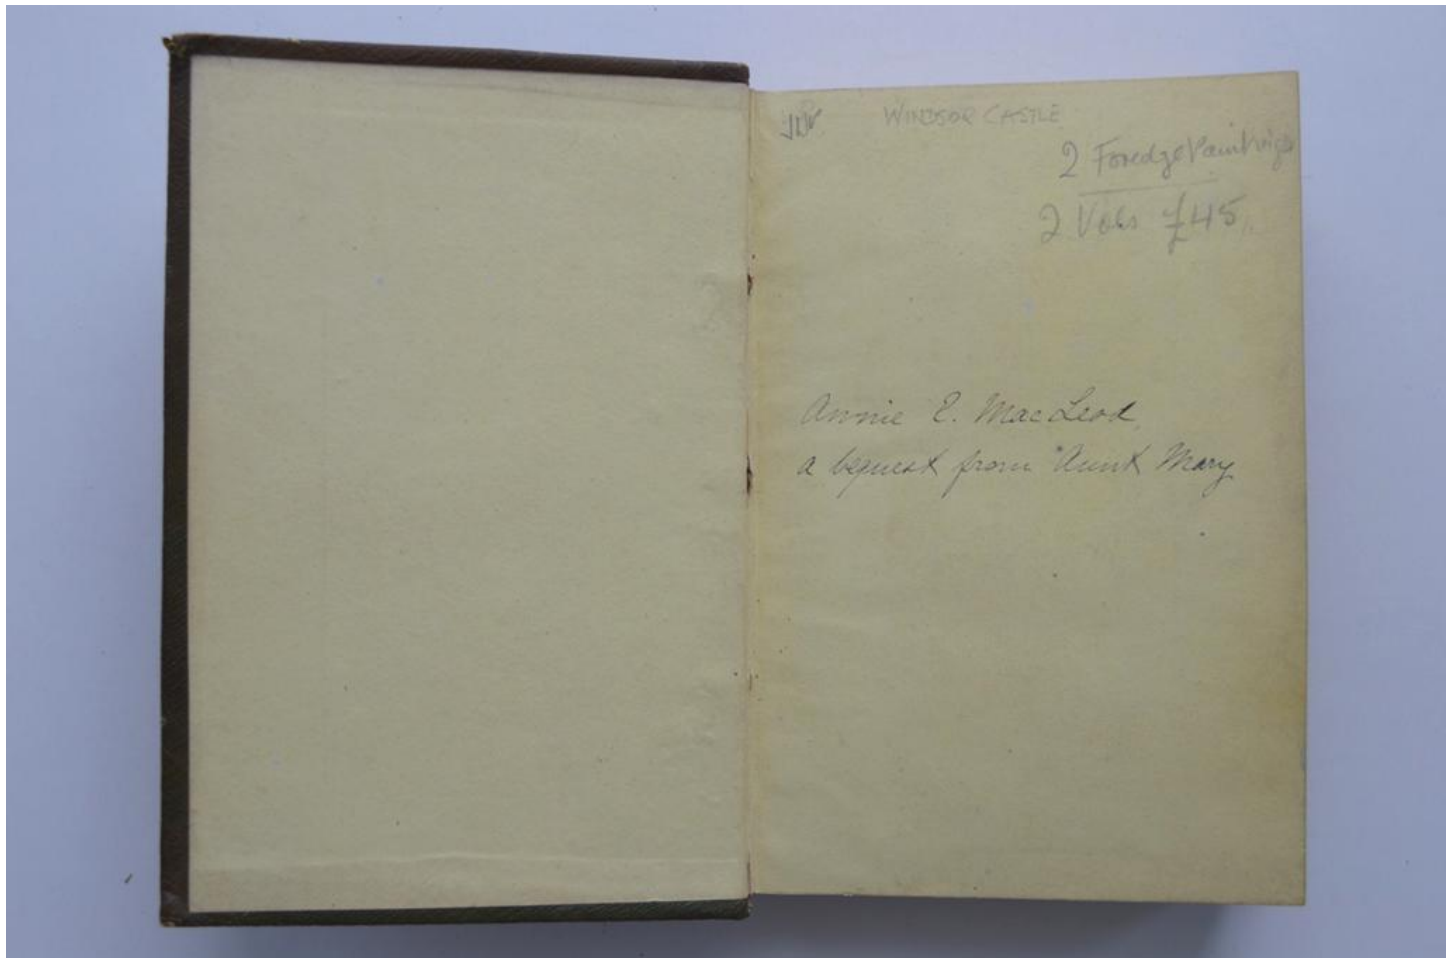 WINDSOR CASTLE
2 Foredge Paintings
2 Vols £45
Annie E. MacLeod
a bequest from Aunt Mary